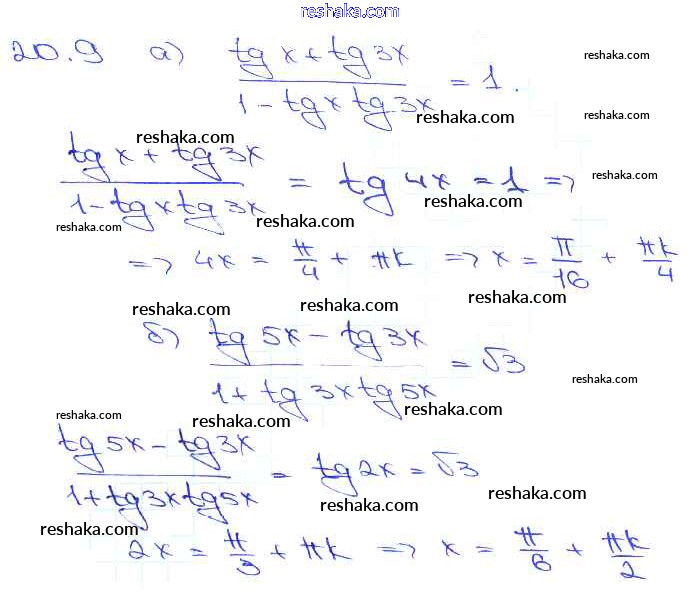 reshaka.com
20.9 а) (tg x + tg 3x)/(1 - tg x tg 3x) = 1.
reshaka.com
reshaka.com
reshaka.com
reshaka.com
(tg x + tg 3x)/(1 - tg x tg 3x) = tg 4x = 1 =>
reshaka.com
reshaka.com
reshaka.com
reshaka.com
=> 4x = π/4 + πk => x = π/16 + πk/4
reshaka.com
reshaka.com
б) (tg 5x - tg 3x)/(1 + tg 3x tg 5x) = √3
reshaka.com
reshaka.com
reshaka.com
reshaka.com
reshaka.com
(tg 5x - tg 3x)/(1 + tg 3x tg 5x) = tg 2x = √3
reshaka.com
reshaka.com
reshaka.com
2x = π/3 + πk => x = π/6 + πk/2
reshaka.com